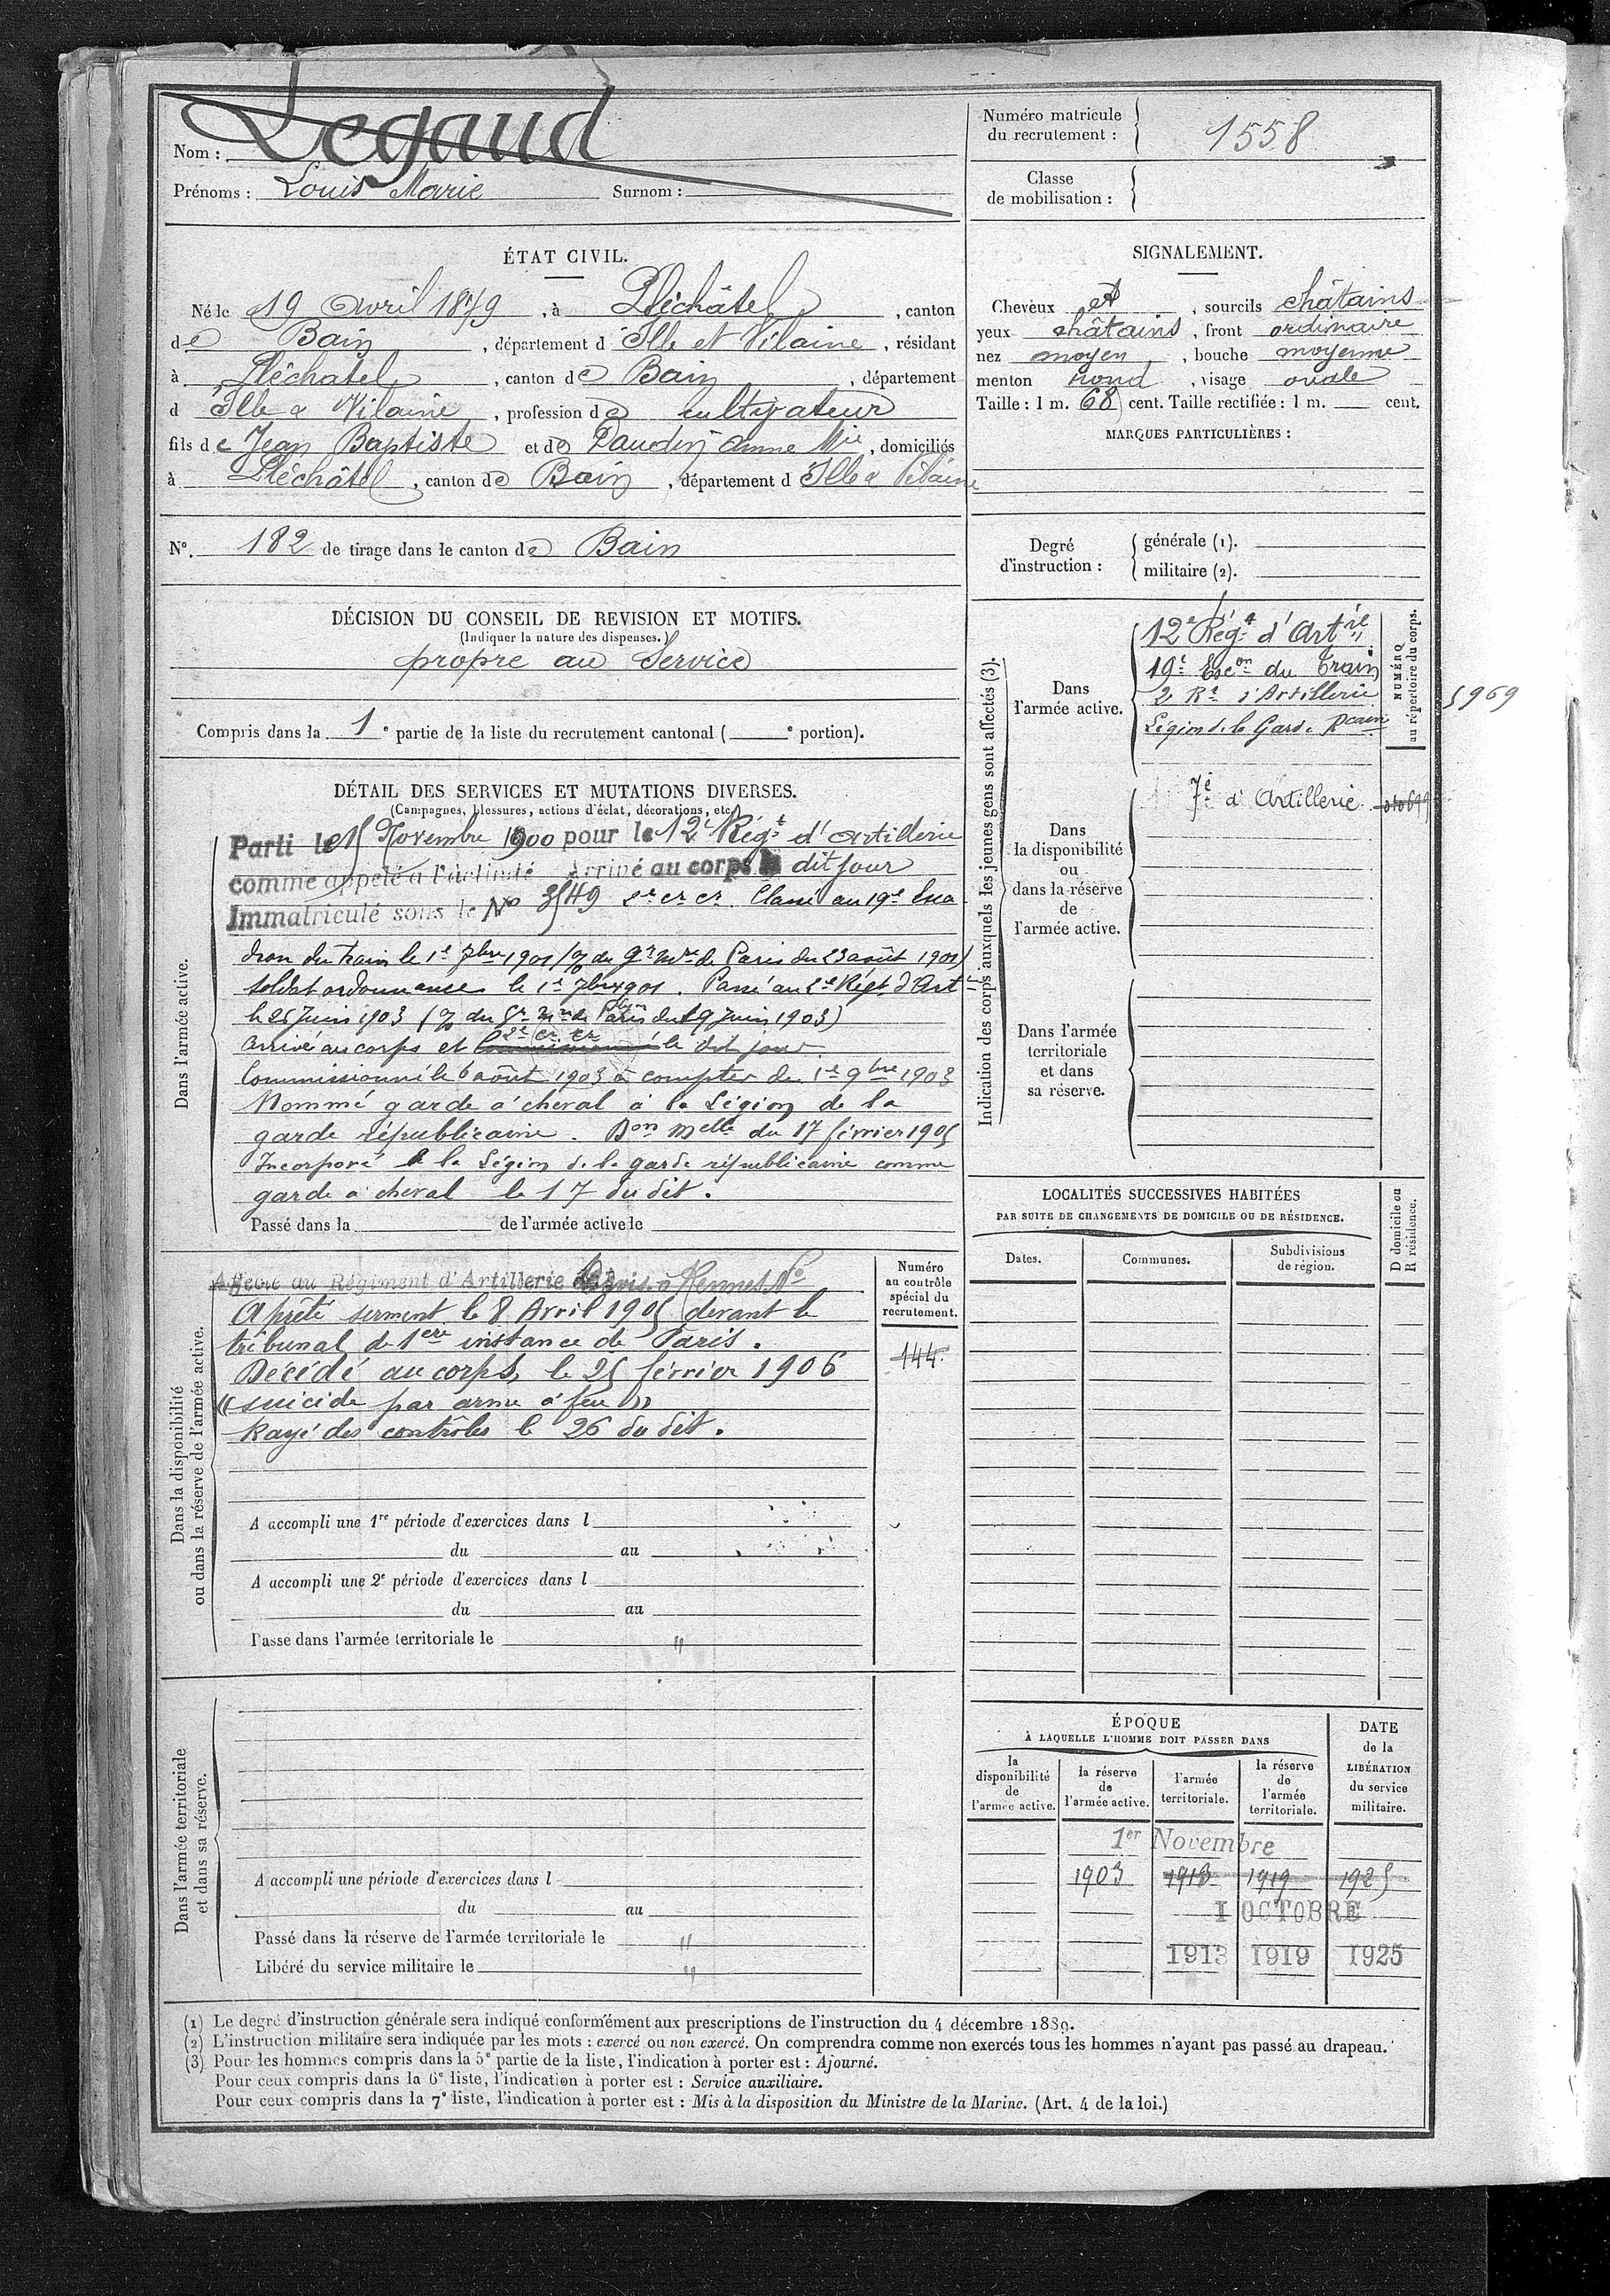 Nom : Legaud
Prénoms : Louis Marie Surnom :
Numéro matricule
du recrutement : 1558
Classe
de mobilisation :
ÉTAT CIVIL.
Né le 19 Avril 1879, à Pléchâtel, canton
de Bain, département d'Ille et Vilaine, résidant
à Pléchatel, canton de Bain, département
d Ille & Vilaine, profession de cultivateur
fils de Jean Baptiste et de Daudin Anne Mie, domiciliés
à Pléchâtel, canton de Bain, département d Ille & Vilaine
SIGNALEMENT.
Cheveux et, sourcils châtains
yeux châtains, front ordinaire
nez moyen, bouche moyenne
menton rond, visage ovale
Taille : 1 m. 68 cent. Taille rectifiée : 1 m. — cent.
MARQUES PARTICULIÈRES :
N°. 182 de tirage dans le canton de Bain
Degré
d'instruction :
générale (1).
militaire (2).
DÉCISION DU CONSEIL DE REVISION ET MOTIFS.
(Indiquer la nature des dispenses.)
propre au Service
Compris dans la 1e partie de la liste du recrutement cantonal ( e portion).
Indication des corps auxquels les jeunes gens sont affectés (3).
Dans
l'armée active.
12e Régt d'Artie
19e Escon du Train
2 Rt d'Artillerie
Légion de la Garde Rcaine
NUMÉRO
au répertoire du corps.
5969
Dans
la disponibilité
ou
dans la réserve
de
l'armée active.
7e d'Artillerie
Dans l'armée
territoriale
et dans
sa réserve.
DÉTAIL DES SERVICES ET MUTATIONS DIVERSES.
(Campagnes, blessures, actions d'éclat, décorations, etc.)
Dans l'armée active.
Parti le 15 Novembre 1900 pour le 12e Régt d'Artillerie
comme appelé à l'activité Arrivé au corps le dit jour
Immatriculé sous le No 3549 2e cr cr. Classé au 19e Esca
dron du train le 1er 7bre 1901 (% du Gr Mre de Paris du 23 août 1901)
soldat ordonnance le 1er 7bre 1901. Passé au 2e Régt d'Artie
le 25 Juin 1903 (% du Gr Mre de Paris du 19 juin 1903)
Arrivé au corps et 2e cr cr le dit jour.
Commissionné le 6 août 1903 à compter du 1er 9bre 1903
Nommé garde à cheval à la Légion de la
garde républicaine. Don Melle du 17 février 1905
Incorporé à la Légion de la garde républicaine comme
garde à cheval le 17 du dit.
Passé dans la de l'armée active le
LOCALITÉS SUCCESSIVES HABITÉES
PAR SUITE DE CHANGEMENTS DE DOMICILE OU DE RÉSIDENCE.
Dates.
Communes.
Subdivisions
de région.
D domicile ou
R résidence.
Dans la disponibilité
ou dans la réserve de l'armée active.
Affecté au Régiment d'Artillerie à Rennes No
A prêté serment le 8 Avril 1905 devant le
tribunal de 1ère instance de Paris.
Décédé au corps, le 25 février 1906
"suicide par arme à feu"
Rayé des contrôles le 26 du dit.
Numéro
au contrôle
spécial du
recrutement.
144
A accompli une 1re période d'exercices dans l
du au
A accompli une 2e période d'exercices dans l
du au
Passé dans l'armée territoriale le "
Dans l'armée territoriale
et dans sa réserve.
A accompli une période d'exercices dans l
du au
Passé dans la réserve de l'armée territoriale le "
Libéré du service militaire le "
ÉPOQUE
À LAQUELLE L'HOMME DOIT PASSER DANS
la
disponibilité
de
l'armée active.
la réserve
de
l'armée active.
l'armée
territoriale.
la réserve
de
l'armée
territoriale.
DATE
de la
LIBÉRATION
du service
militaire.
1er Novembre
1903 1913 1919 1925
1 OCTOBRE
1913 1919 1925
(1) Le degré d'instruction générale sera indiqué conformément aux prescriptions de l'instruction du 4 décembre 1889.
(2) L'instruction militaire sera indiquée par les mots : exercé ou non exercé. On comprendra comme non exercés tous les hommes n'ayant pas passé au drapeau.
(3) Pour les hommes compris dans la 5e partie de la liste, l'indication à porter est : Ajourné.
Pour ceux compris dans la 6e liste, l'indication à porter est : Service auxiliaire.
Pour ceux compris dans la 7e liste, l'indication à porter est : Mis à la disposition du Ministre de la Marine. (Art. 4 de la loi.)